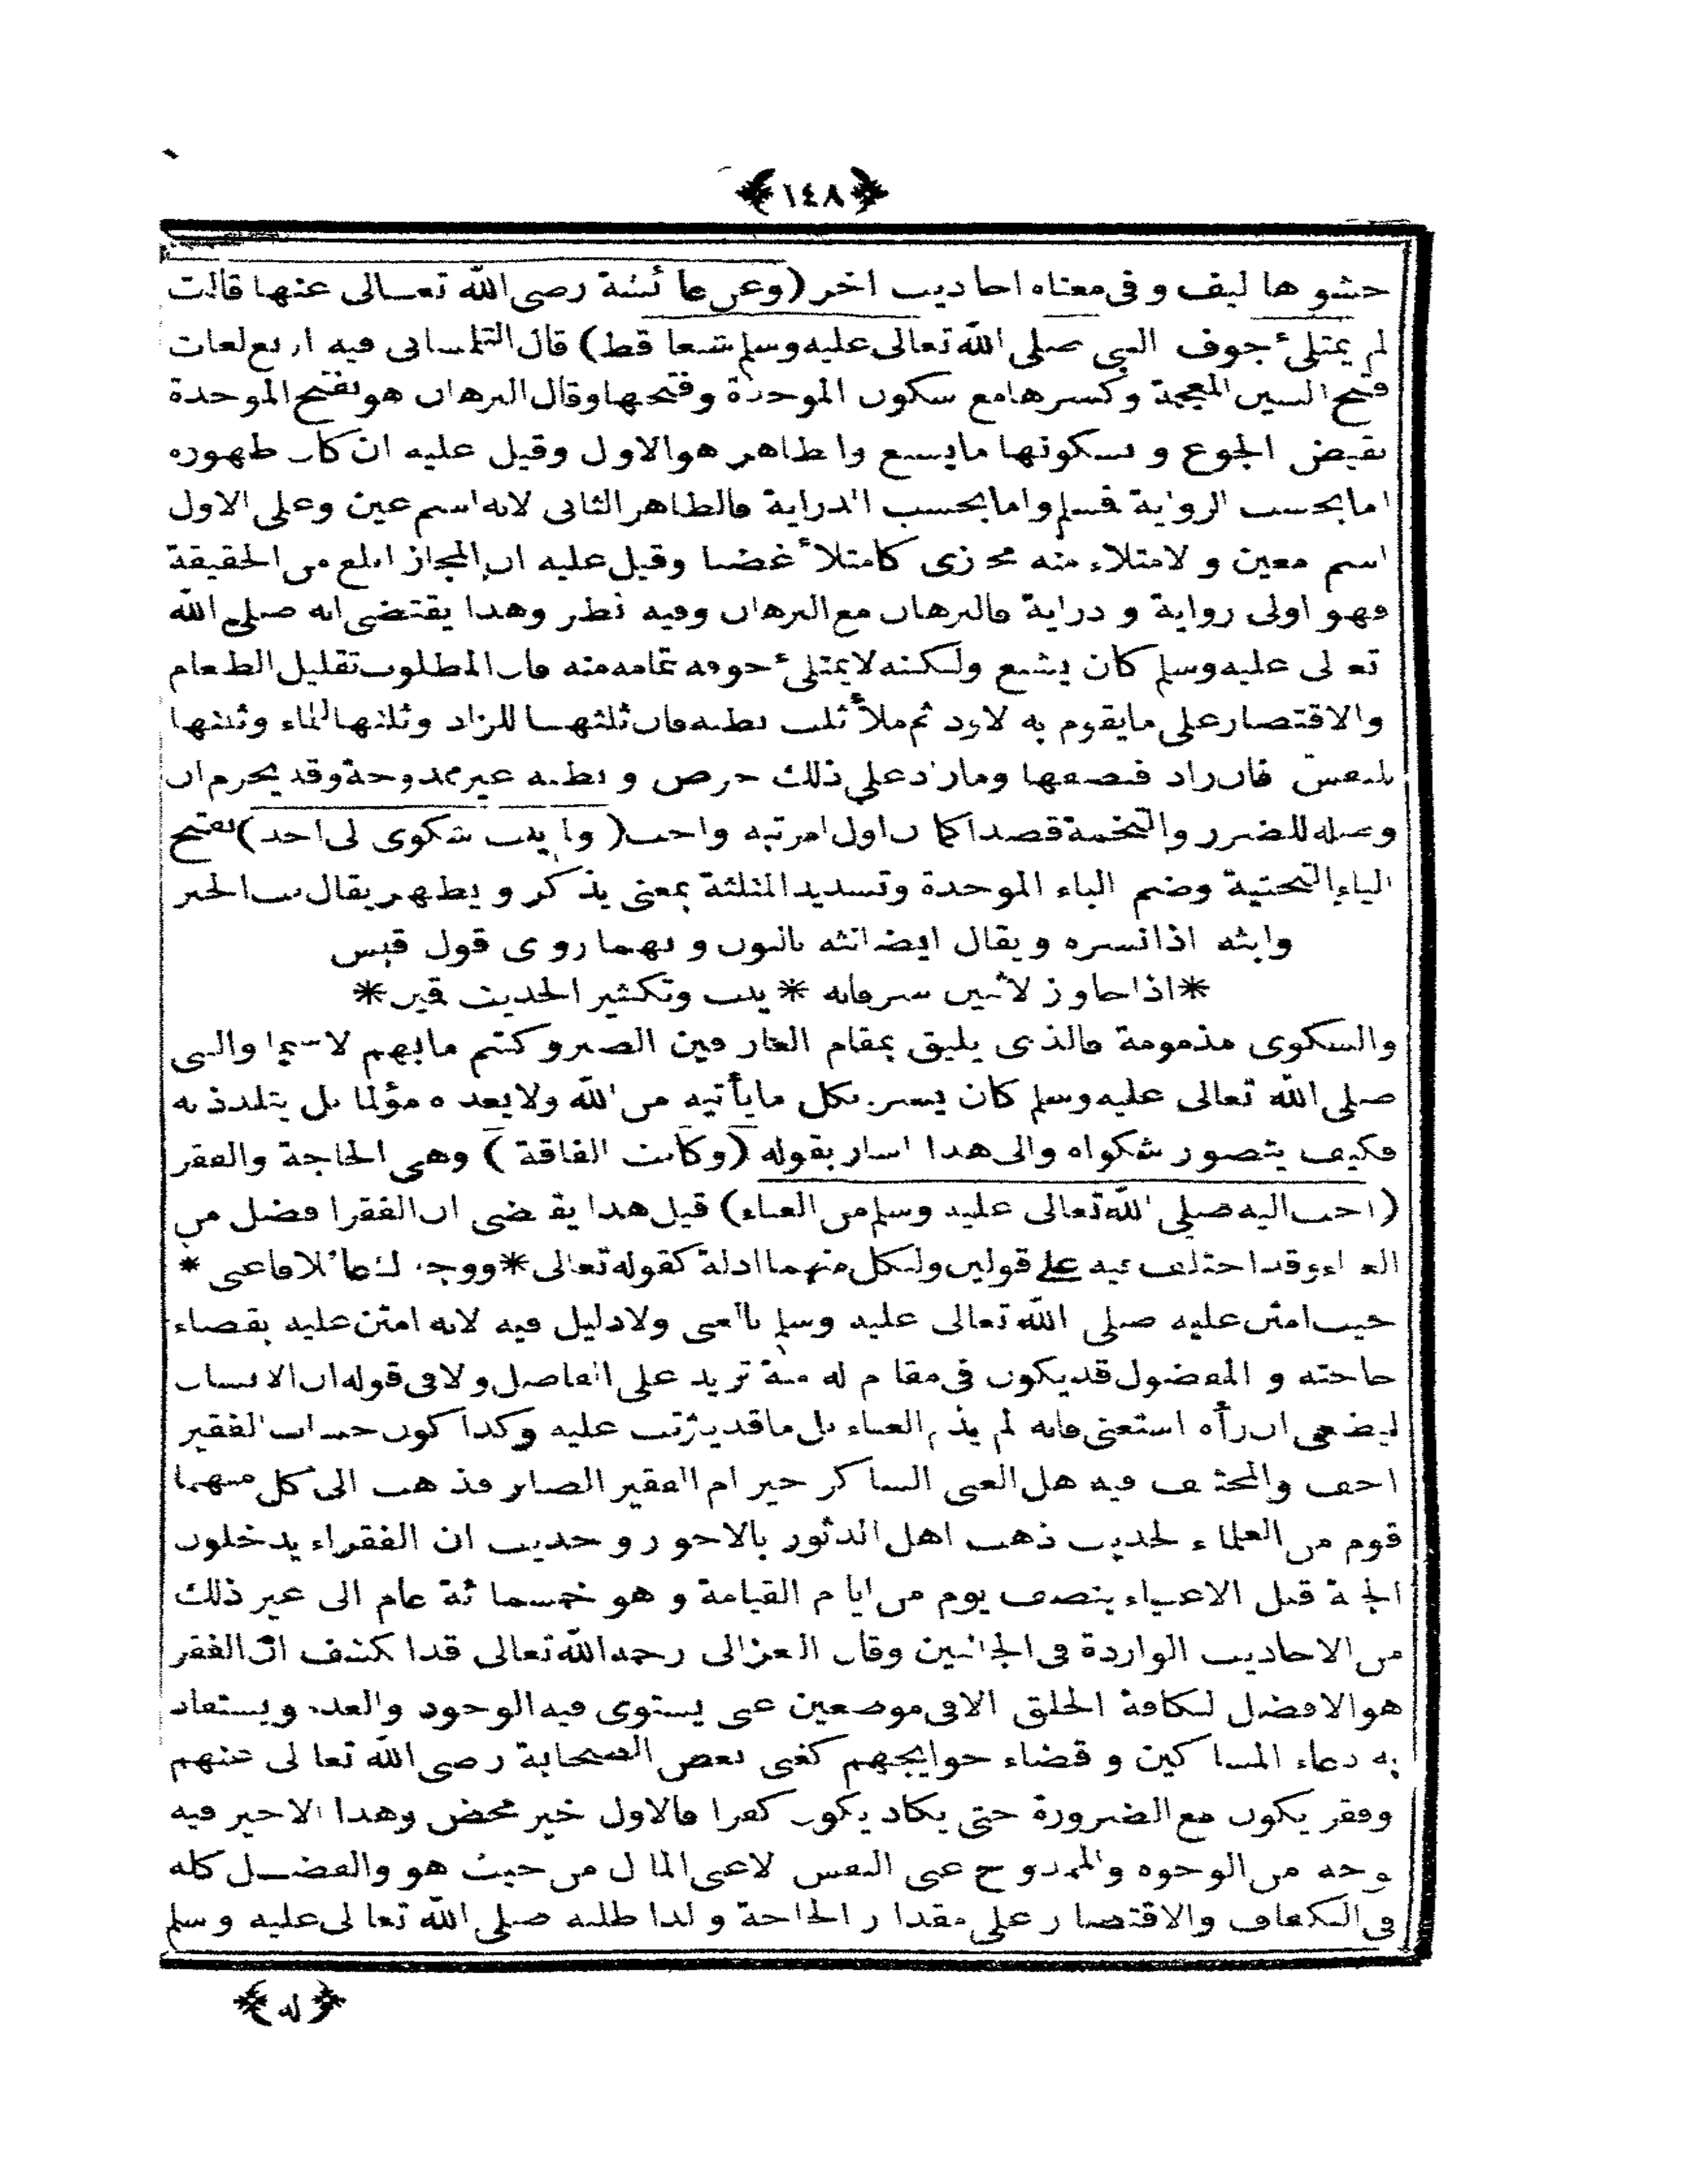 ﴿١٤٨﴾
حشوها ليف وفى معناه احاديث اخر (وعن عائشة رضى الله تعالى عنها قالت
لم يمتلئ جوف النبى صلى الله تعالى عليه وسلم شبعا قط) قال التلمسانى فيه اربع لغات
فتح الشين المعجمة وكسرها مع سكون الموحدة وفتحها وقال البرهان هو بفتح الموحدة
نقيض الجوع وبسكونها ما يشبع والظاهر هو الاول وقيل عليه ان كان ظهوره
اما بحسب الرواية فمسلم واما بحسب الدراية فالظاهر الثانى لانه اسم عين وعلى الاول
اسم معين والامتلاء منه مجازى كامتلأ غضبا وقيل عليه ان المجاز ابلغ من الحقيقة
فهو اولى رواية ودراية فالبرهان مع البرهان وفيه نظر وهذا يقتضى انه صلى الله
تعالى عليه وسلم كان يشبع ولكنه لا يمتلئ جوفه تمامه منه فان المطلوب تقليل الطعام
والاقتصار على ما يقوم به لاود ثم ملأ ثلث بطنه فان ثلثها للزاد وثلثها للماء وثلثها
للنفس فان زاد فنصفها وما زاد على ذلك حرص وبطنه غير ممدوحة وقد يحرم ان
وصله للضرر والتخمة قصدا كما ان اول مرتبه واجب (ولم يبث شكوى الى احد) بفتح
الياء التحتية وضم الباء الموحدة وتشديد المثلثة بمعنى يذكر ويظهر يقال بث الخبر
وابثه اذا نشره ويقال ايضا نثه بالنون وبهما روى قول قيس
*اذا جاوز الاثنين سر فانه * يبث وتكثير الحديث قمين*
والشكوى مذمومة فالذى يليق بمقام العارفين الصبر وكتم ما بهم لا سيما والنبى
صلى الله تعالى عليه وسلم كان يسر بكل ما يأتيه من الله ولا يعده مؤلما بل يتلذذ به
فكيف يتصور شكواه والى هذا اشار بقوله (وكانت الفاقة) وهى الحاجة والفقر
(احب اليه صلى الله تعالى عليه وسلم من الغناء) قيل هذا يقتضى ان الفقر افضل من
الغناء وقد اختلف فيه على قولين ولكل منهما ادلة كقوله تعالى *ووجدك عائلا فاغنى*
حيث امتن عليه صلى الله تعالى عليه وسلم بالغنى ولا دليل فيه لانه امتن عليه بقضاء
حاجته والمفضول قد يكون فى مقام له منة تزيد على الفاضل ولا فى قوله ان الانسان
ليطغى ان رأه استغنى فانه لم يذم الغناء بل ما قد يترتب عليه وكذا كون حساب الفقير
اخف والمختلف فيه هل الغنى الشاكر خير ام الفقير الصابر فذهب الى كل منهما
قوم من العلماء لحديث ذهب اهل الدثور بالاجور وحديث ان الفقراء يدخلون
الجنة قبل الاغنياء بنصف يوم من ايام القيامة وهو خمسمائة عام الى غير ذلك
من الاحاديث الواردة فى الجانبين وقال الغزالى رحمه الله تعالى قد انكشف ان الفقر
هو الافضل لكافة الخلق الا فى موضعين غنى يستوى فيه الوجود والعدم ويستفاد
به دعاء المساكين وقضاء حوايجهم كغنى بعض الصحابة رضى الله تعالى عنهم
وفقر يكون مع الضرورة حتى يكاد يكون كفرا فالاول خير محض وهذا لاخير فيه
بوجه من الوجوه والممدوح غنى النفس لا غنى المال من حيث هو والفضل كله
فى الكفاف والاقتصار على مقدار الحاجة ولذا طلبه صلى الله تعالى عليه وسلم
﴿له﴾